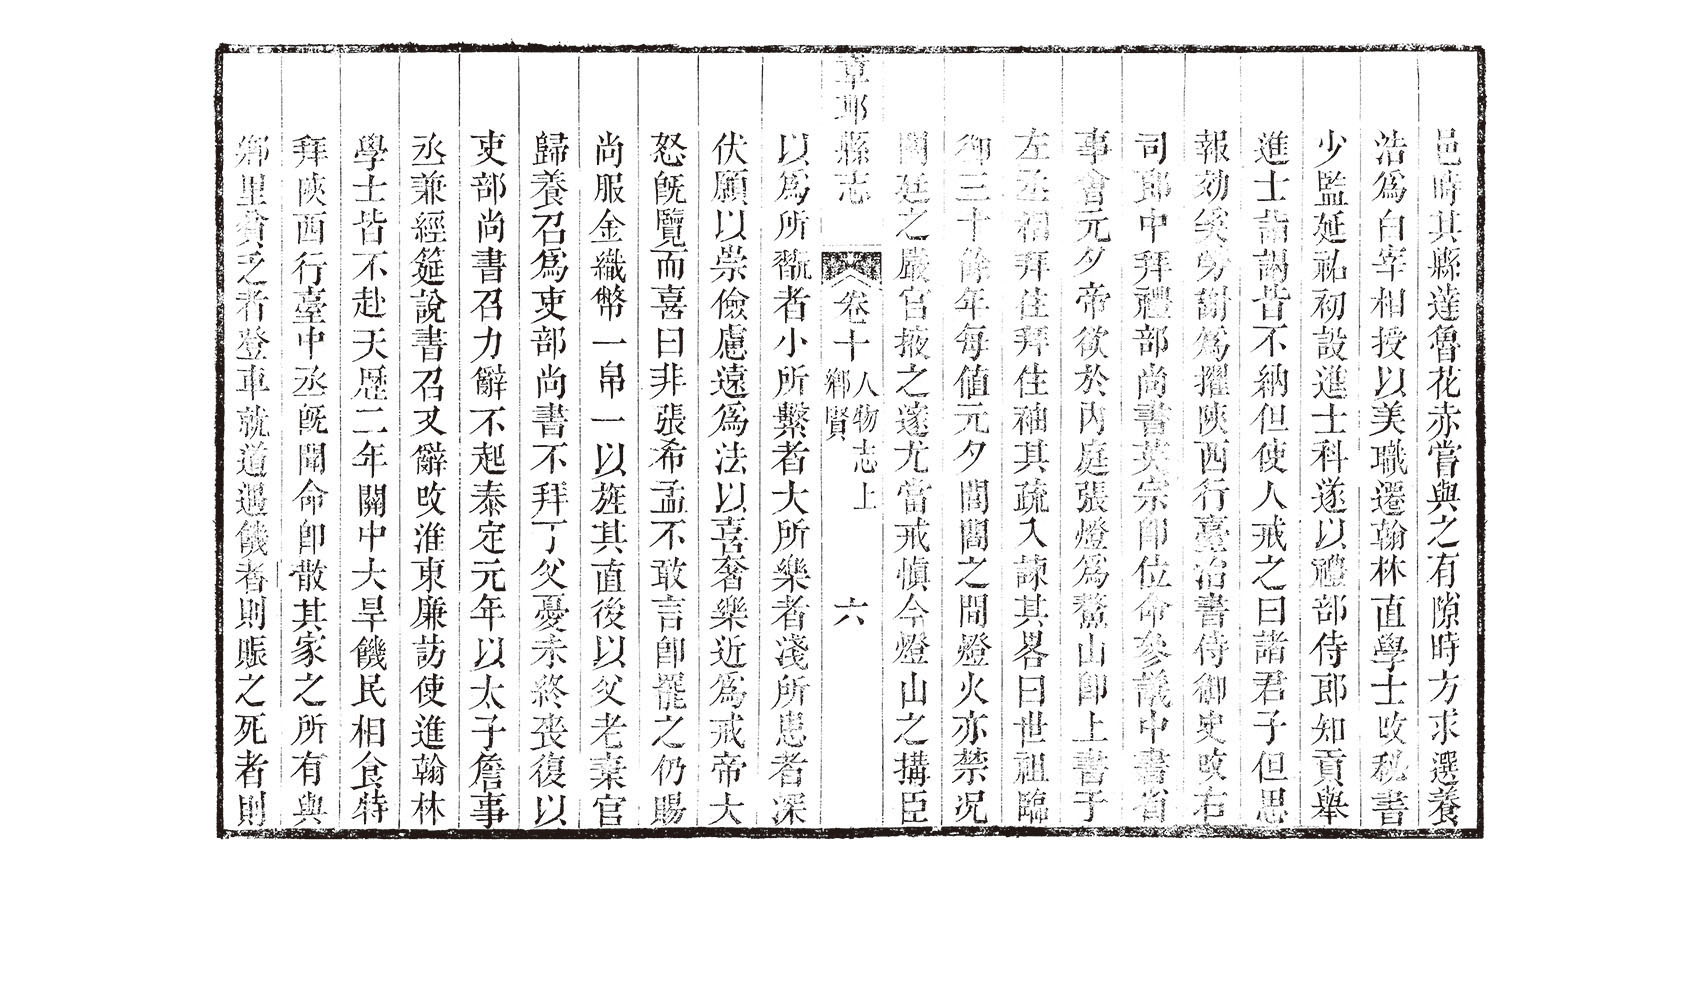 邑時其縣達魯花赤嘗與之有隙時方求選養
浩爲白宰相授以美職遷翰林直學士攺秘書
少監延祐初設進士科遂以禮部侍郎知貢舉
進士皆詣謁皆不納但使人戒之曰諸君子但思
報効奚勞謝爲擢陜西行臺治書侍御史攺右
司郎中拜禮部尚書英宗卽位命參議中書省
事會元夕帝欲於內庭張燈爲鰲山卽上書于
左丞相拜住拜住袖其疏入諫其畧曰世祖臨
御三十餘年每値元夕閭閻之間燈火亦禁况
闕廷之嚴宮掖之邃尤當戒愼今燈山之搆臣
章邱縣志
卷十
人物志上
鄉賢
六
以爲所翫者小所繫者大所樂者淺所患者深
伏願以崇儉慮遠爲法以喜奢樂近爲戒帝大
怒旣覽而喜曰非張希孟不敢言卽罷之仍賜
尚服金織幣一帛一以旌其直後以父老棄官
歸養召爲吏部尚書不拜丁父憂未終喪復以
吏部尚書召力辭不起泰定元年以太子詹事
丞兼經筵說書召又辭攺淮東廉訪使進翰林
學士皆不赴天歷二年關中大旱饑民相食特
拜陜西行臺中丞旣聞命卽散其家之所有與
鄉里貧乏者登車就道遇饑者則賑之死者則